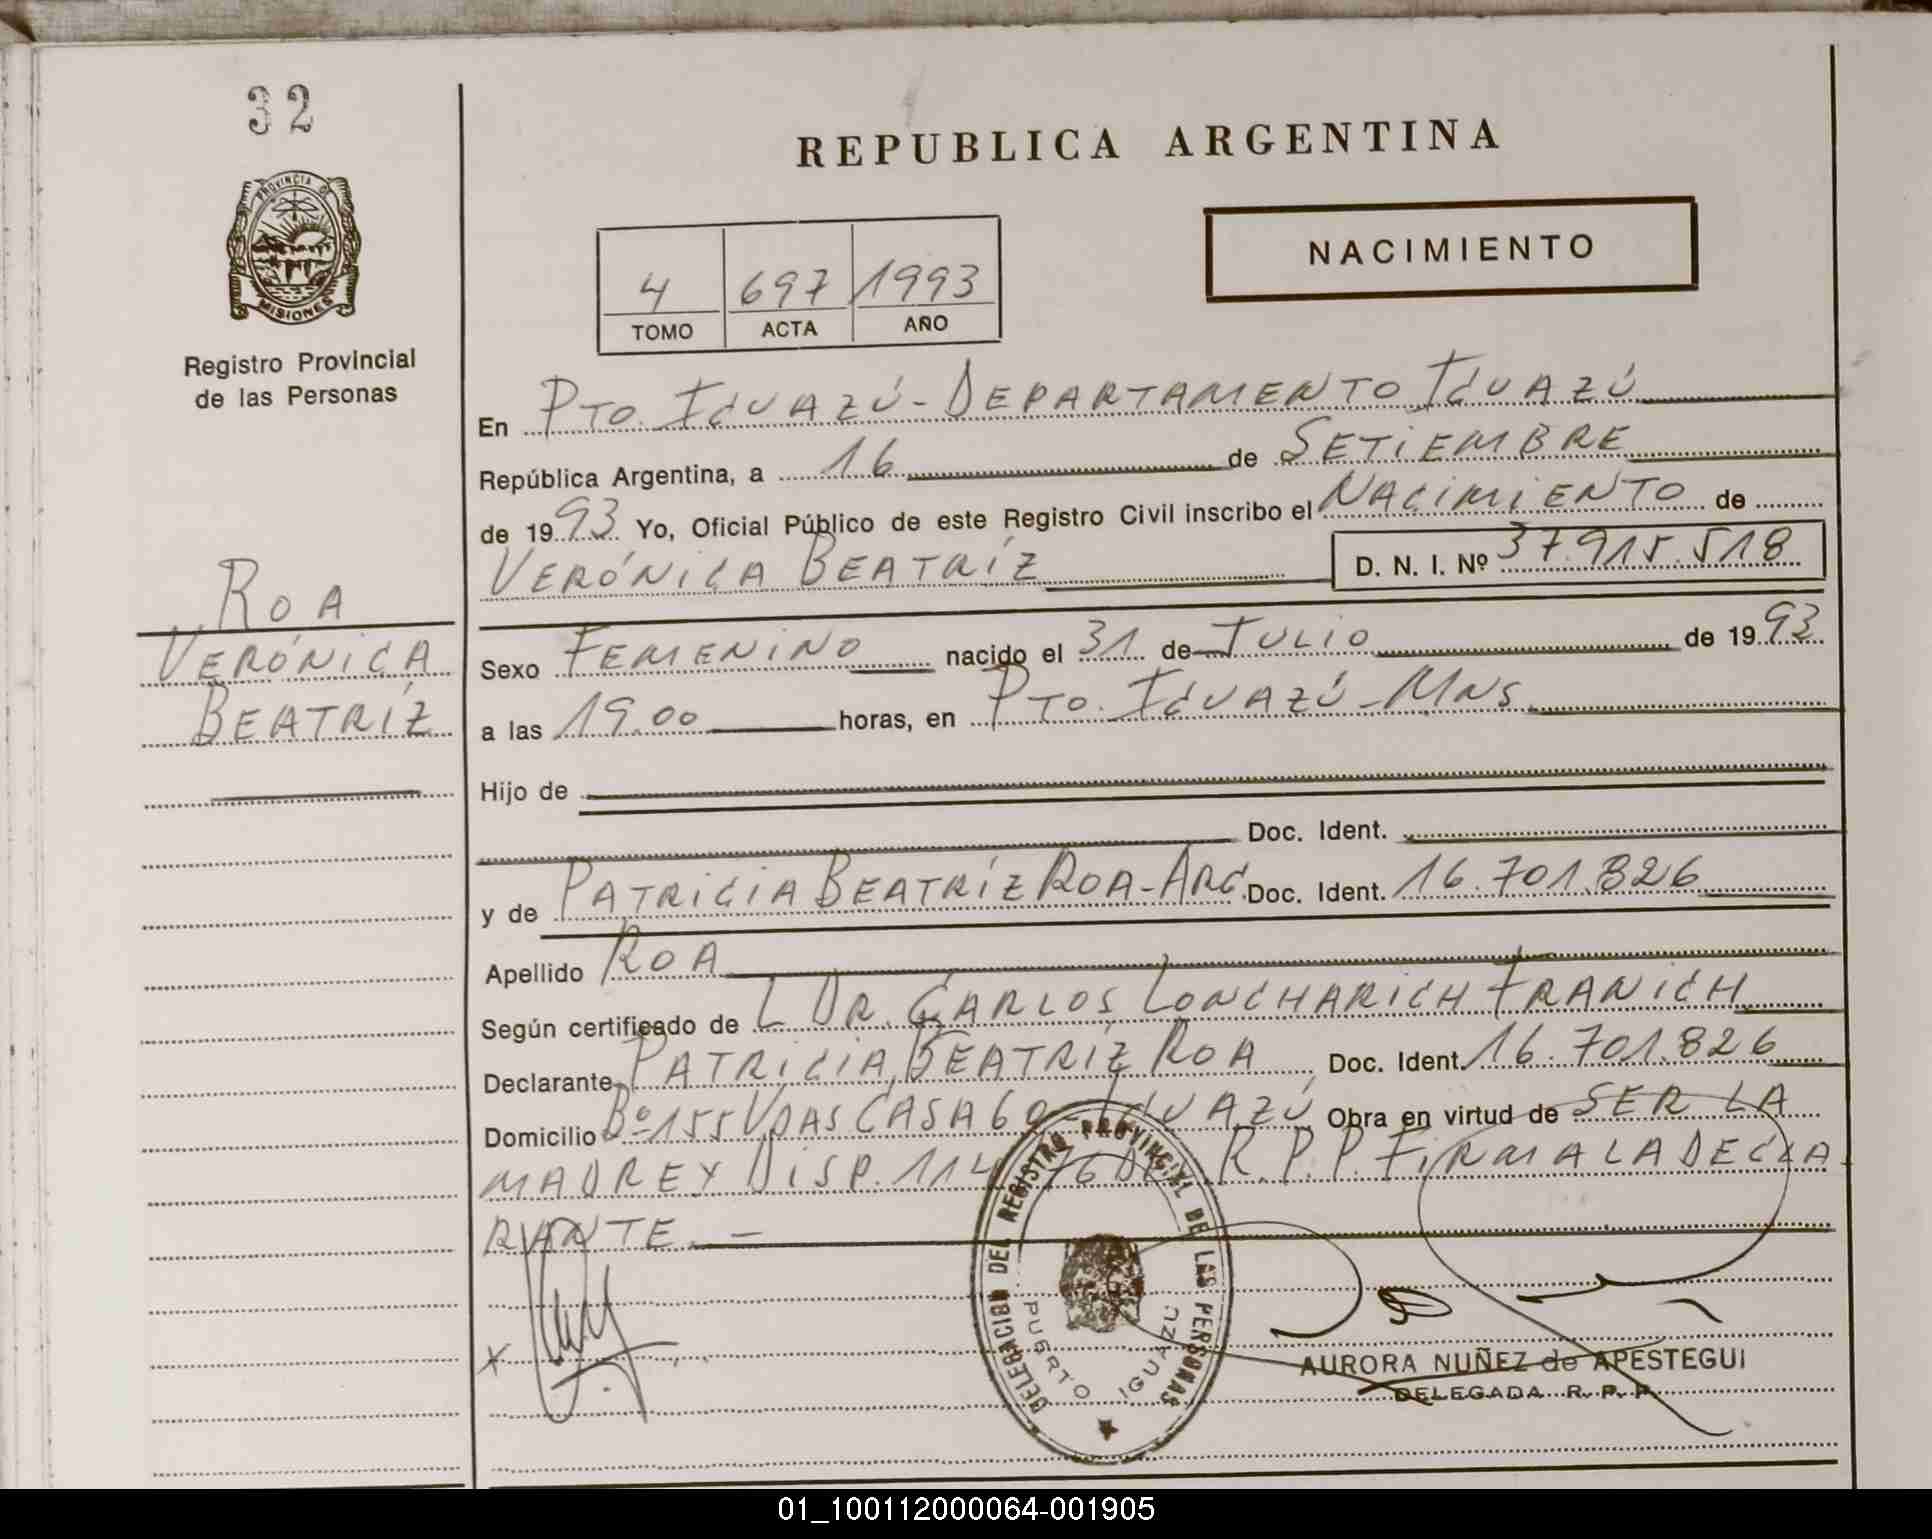 32
PROVINCIA DE
MISIONES
Registro Provincial
de las Personas
ROA
VERÓNICA
BEATRÍZ
REPUBLICA ARGENTINA
NACIMIENTO
4 697 1993
TOMO ACTA AÑO
En PTO. IGUAZÚ - DEPARTAMENTO IGUAZÚ
República Argentina, a 16 de SETIEMBRE
de 1993 Yo, Oficial Público de este Registro Civil inscribo el NACIMIENTO de
VERÓNICA BEATRÍZ D. N. I. Nº 37.915.518
Sexo FEMENINO nacido el 31 de JULIO de 1993
a las 19.00 horas, en PTO. IGUAZÚ - MNS
Hijo de
Doc. Ident.
y de PATRICIA BEATRÍZ ROA - ARG. Doc. Ident. 16.701.826
Apellido ROA
Según certificado de L DR. CARLOS LONCHARICH FRANICH
Declarante PATRICIA BEATRÍZ ROA Doc. Ident. 16.701.826
Domicilio Bº 155 VDAS CASA 60 - IGUAZÚ Obra en virtud de SER LA
MADRE Y DISP. 114 76 DEL R.P.P. FIRMA LA DECLA
RANTE. -
x
DELEGACION DEL REGISTRO PROVINCIAL DE LAS PERSONAS
PUERTO IGUAZU
AURORA NUÑEZ de APESTEGUI
DELEGADA R. P. P.
01_100112000064-001905